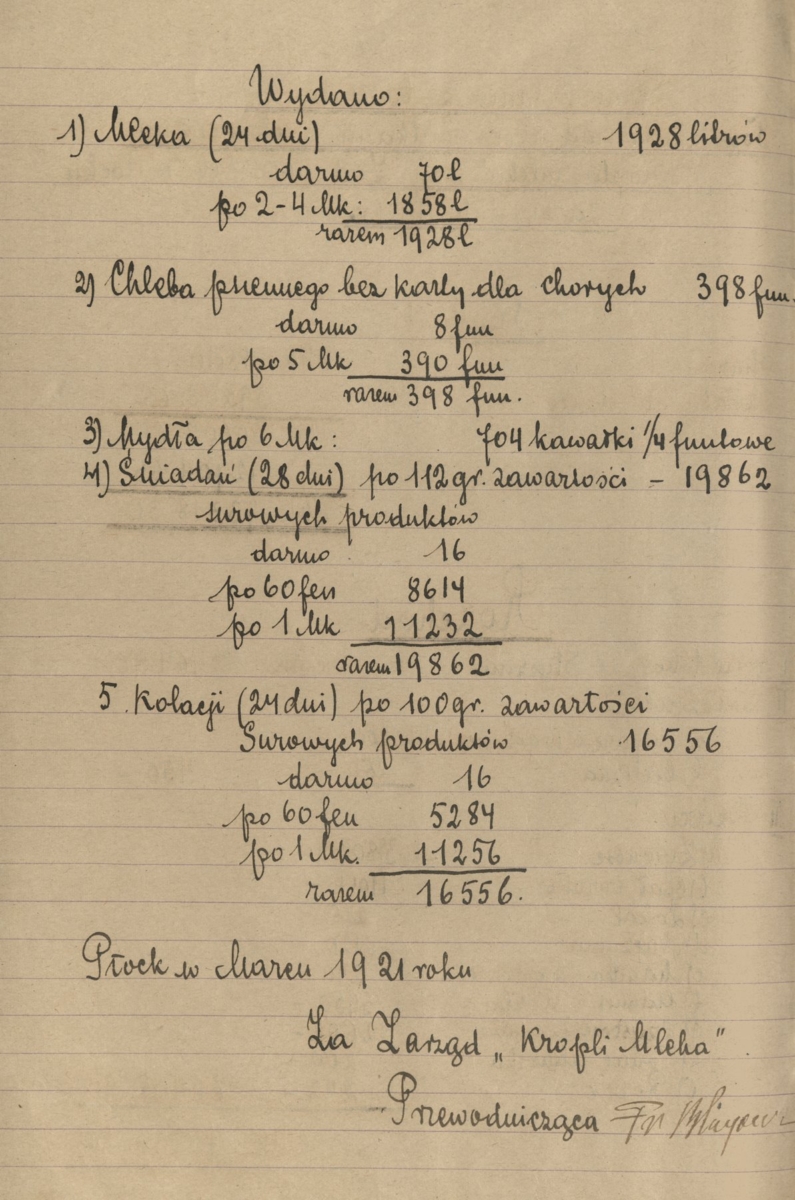 Wydano:
1) Mleka (24 dni) 1928 litrów
darmo 70 l
po 2-4 Mk: 1858 l
razem 1928 l
2) Chleba pszennego bez karty dla chorych 398 fun.
darmo 8 fun
po 5 Mk 390 fun
razem 398 fun.
3) Mydła po 6 Mk: 704 kawałki 1/4 funtowe
4) Śniadań (28 dni) po 112 gr. zawartości - 19862
surowych produktów
darmo 16
po 60 fen 8614
po 1 Mk 11232
razem 19862
5. Kolacji (24 dni) po 100 gr. zawartości
Surowych produktów 16556
darmo 16
po 60 fen 5284
po 1 Mk. 11256
razem 16556.
Płock w Marcu 1921 roku
Za Zarząd „Kropli Mleka"
Przewodnicząca